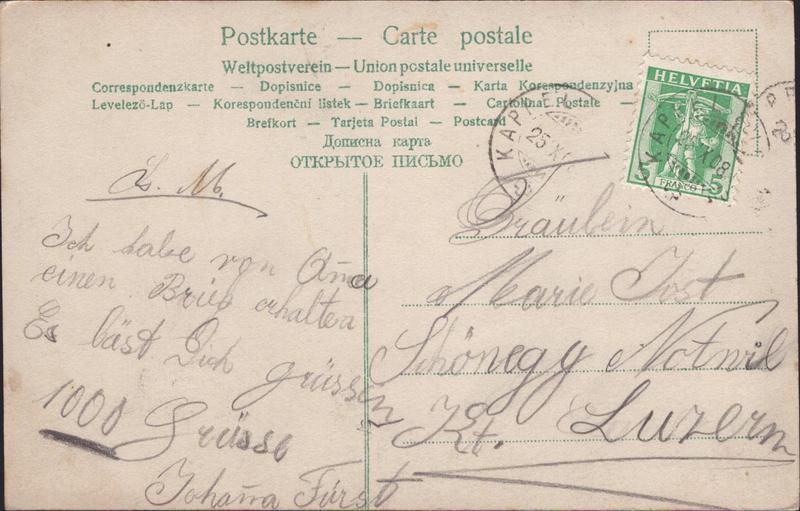 Postkarte — Carte postale
Weltpostverein — Union postale universelle
Correspondenzkarte — Dopisnice — Dopisnica — Karta Korespondenzyjna
Levelező-Lap — Korespondenční listek — Briefkaart — Cartolina Postale —
Brefkort — Tarjeta Postal — Postcard
Дописна карта
ОТКРЫТОЕ ПИСЬМО
HELVETIA
5
FRANCO
5
KAPP
25 X
KAPP
X 08
L. M.
Ich habe von Aña
einen Brief erhalten
Es läst Dich
grüssen
1000 Grüsse
Johaña Fürst
Fräulein
Marie Jost
Schönegg Notwil
Kt. Luzern